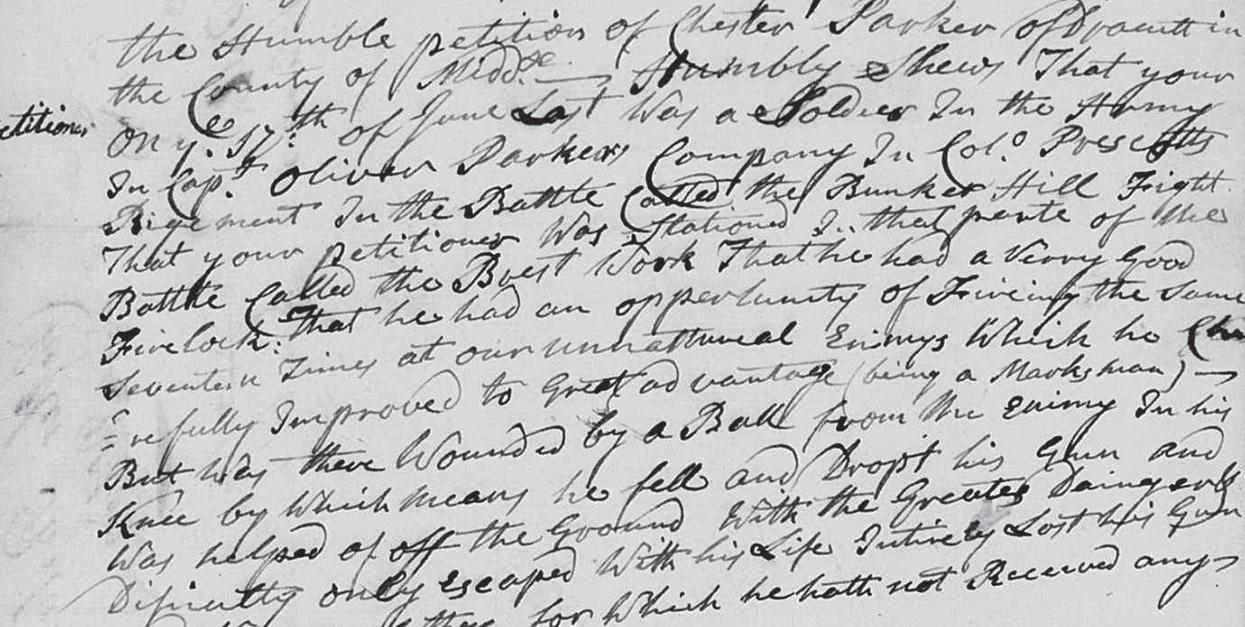 the Humble petition of Chester Parker of Dracutt in
the County of Midd.sx — Humbly Shews That your
petitioner
On ye. 17th of June Last Was a Soldier In the Army
In Capt. Oliver Parkers Company In Colo. Prescotts
Rigement In the Battle Called the Bunker Hill Fight
That your petitioner Was Stationed In that perte of the
Battle Called the Brest Work That he had a Verry Good
Firelock: That he had an oppertunity of Fireing the Same
Seventeen Times at our unnattureal Enimys Which he
=refully Improved to Great advantage (being a Marksman) —
But was there Wounded by a Ball from the Enimy In his
Knee by Which means he fell and Dropt his Gun and
Was helped of off the Ground With the Greates Dainger &
Dificulty only Escaped With his Life Intirely Lost his Gun
for Which he hath not Received any